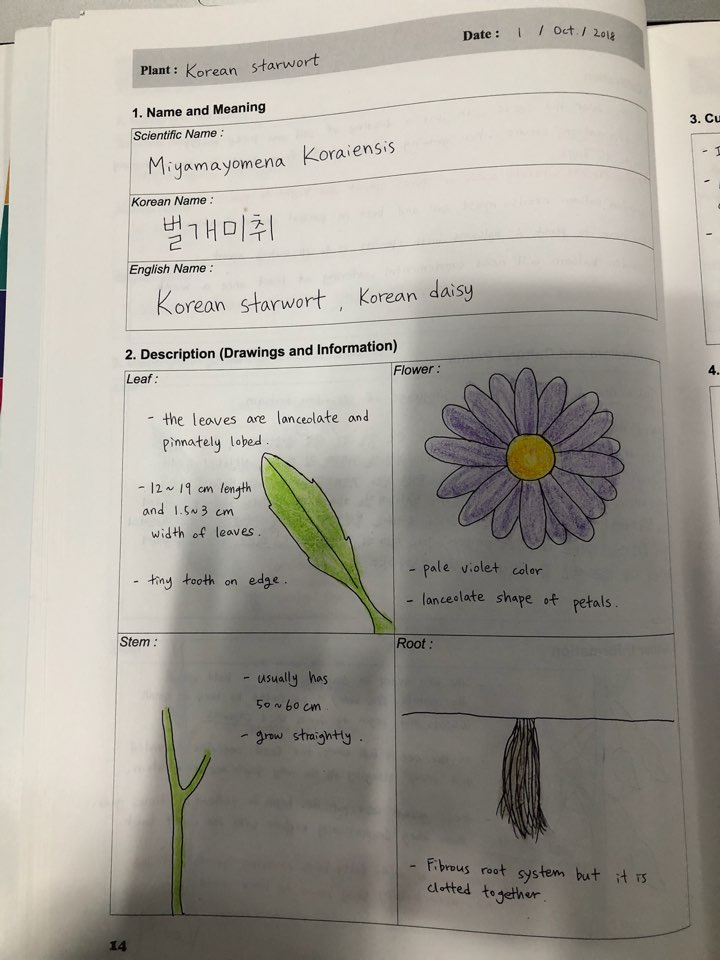 Plant : Korean starwort
Date : 1 / Oct. / 2018
1. Name and Meaning
Scientific Name :
Miyamayomena Koraiensis
Korean Name :
벌개미취
English Name :
Korean starwort , Korean daisy
2. Description (Drawings and Information)
Leaf :
- the leaves are lanceolate and
pinnately lobed.
- 12 ~ 19 cm length
and 1.5~3 cm
width of leaves.
- tiny tooth on edge.
Flower :
- pale violet color
- lanceolate shape of petals.
Stem :
- usually has
50~60 cm
- grow straightly.
Root :
- Fibrous root system but it is
clotted together.
14
3. Cu
4.